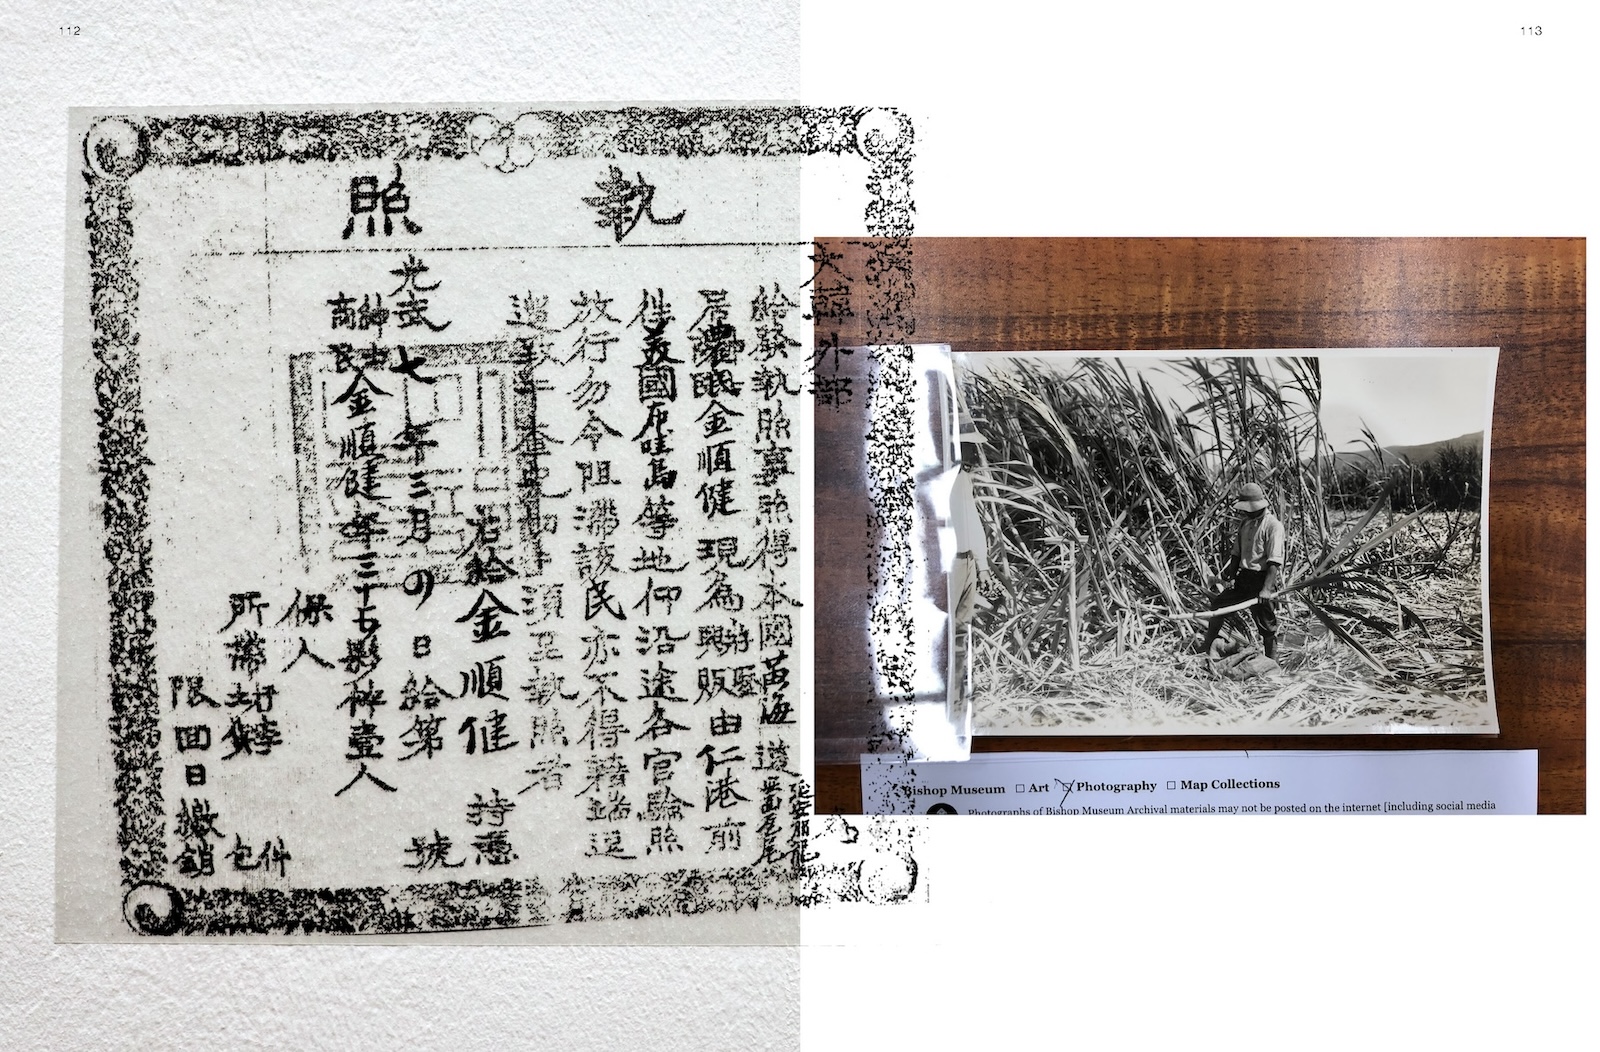 112
113
執照
大韓外部
給發執照事照得本國黃海道
居農民金順健現為遊歷興販由仁港前
往美國布哇島等地仰沿途各官驗照
放行勿令阻滯該民亦不得藉端逗
遛致干查究切切須至執照者
右給金順健 持憑
光武七年三月の日給第 號
紳士商民金順健年三十七 壹人
保人
所帶行李 包件
限回日繳銷
Bishop Museum ☐ Art ☐ Photography ☐ Map Collections
Photographs of Bishop Museum Archival materials may not be posted on the internet [including social media